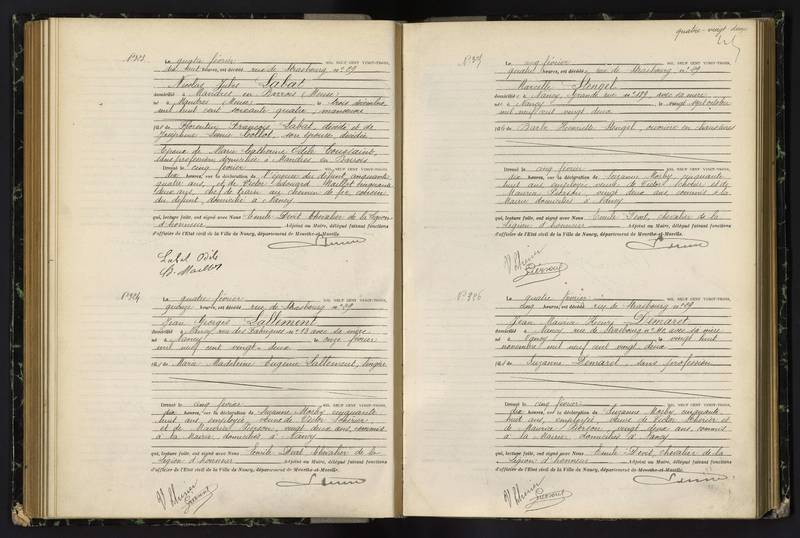 quatre-vingt deux
N° 323
Le quatre février MIL NEUF CENT VINGT-TROIS,
dix huit heures, est décédé rue de Strasbourg n° 89
Nicolas Jules Labat
domicilié à Mandres en Barrois (Meuse)
né à Mandres (Meuse) le trois décembre
mil huit cent soixante quatre, manœuvre
fils de Florentin François Labat, décédé et de
Joséphine son épouse, décédée
Époux de Marie Catherine Odile Toussaint,
sans profession domiciliée à Mandres en Barrois
Dressé le cinq février MIL NEUF CENT VINGT-TROIS,
dix heures, sur la déclaration de l'épouse du défunt, cinquante
quatre ans, et de Victor Edouard Maillot cinquante
deux ans, chef de train au chemin de fer, cousin
du défunt, domicilié à Nancy
qui, lecture faite, ont signé avec Nous Emile Devit Chevalier de la Légion
d'honneur Adjoint au Maire, délégué faisant fonctions
d'officier de l'Etat civil de la Ville de Nancy, département de Meurthe-et-Moselle.
Labat Odile
Maillot
N° 324
Le quatre février MIL NEUF CENT VINGT-TROIS,
quinze heures, est décédé rue de Strasbourg n° 89
Jean Georges Lallement
domicilié à Nancy rue des Fabriques n° 13 avec sa mère
né à Nancy le onze février
mil neuf cent vingt-deux
fils de Marie Madeleine Eugénie Lallement, lingère
Dressé le cinq février MIL NEUF CENT VINGT-TROIS,
dix heures, sur la déclaration de Suzanne Morby cinquante
huit ans, employée, veuve de Victor Scherier
et de Maurice Pierson, vingt deux ans, commis
à la Mairie, domiciliés à Nancy
qui, lecture faite, ont signé avec Nous Emile Devit Chevalier de la
Légion d'honneur Adjoint au Maire, délégué faisant fonctions
d'officier de l'Etat civil de la Ville de Nancy, département de Meurthe-et-Moselle.
N° 325
Le cinq février MIL NEUF CENT VINGT-TROIS,
quatre heures, est décédée rue de Strasbourg n° 89
Marcelle Stengel
domiciliée à Nancy Grande rue n° avec sa mère
née à Nancy le vingt sept octobre
mil neuf cent vingt deux
fille de Barbe Henriette Stengel, ouvrière en chaussures
Dressé le cinq février MIL NEUF CENT VINGT-TROIS,
dix heures, sur la déclaration de Suzanne Morby, cinquante
huit ans employée veuve de Victor Scherier et de
Maurice Pierson vingt deux ans commis à la
Mairie domiciliés à Nancy
qui, lecture faite, ont signé avec Nous Emile Devit, chevalier de la
Légion d'honneur Adjoint au Maire, délégué faisant fonctions
d'officier de l'Etat civil de la Ville de Nancy, département de Meurthe-et-Moselle.
N° 326
Le quatre février MIL NEUF CENT VINGT-TROIS,
cinq heures, est décédé rue de Strasbourg n° 89
Jean Maurice Henry Demaret
domicilié à Nancy, rue de Strasbourg n° avec sa mère
né à Nancy le vingt huit
novembre mil neuf cent vingt-deux
fils de Suzanne Demaret, sans profession
Dressé le cinq février MIL NEUF CENT VINGT-TROIS,
dix heures, sur la déclaration de Suzanne Morby, cinquante
huit ans, employée, veuve de Victor Scherier et
de Maurice Pierson, vingt deux ans, commis
à la Mairie domiciliés à Nancy
qui, lecture faite, ont signé avec Nous Emile Devit, chevalier de la
Légion d'honneur Adjoint au Maire, délégué faisant fonctions
d'officier de l'Etat civil de la Ville de Nancy, département de Meurthe-et-Moselle.